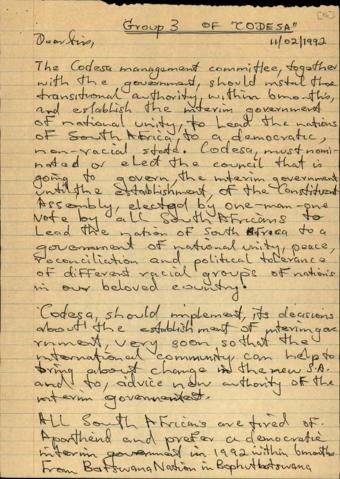 Group 3 OF "CODESA"
Dear Sirs, 11/02/1992
The Codesa management committee, together
with the government, should instal the
transitional authority, within 6months,
and establish the interim government
of national unity, to Lead the nations
of South Africa, to a democratic,
non-racial state. Codesa, must nomi-
nated or elect the council that is
going to govern the interim government
until the establishment, of the Constituent
Assembly, elected by one-man-one
vote by all South Africans to
Lead the nation of South Africa to a
government of national unity, peace,
reconciliation and political tolerance
of different racial groups of nations
in our beloved country.
Codesa, should implement, its decisions
about the establishment of interim gove
rnment, very soon so that the
international community can help to
bring about change in the new S.A.
and to, advice new authority of the
interim government.
All South Africans are tired of
Apartheid and prefer a democratic
interim government in 1992 within 6months
From Botswana Nation in Bophutbotswana